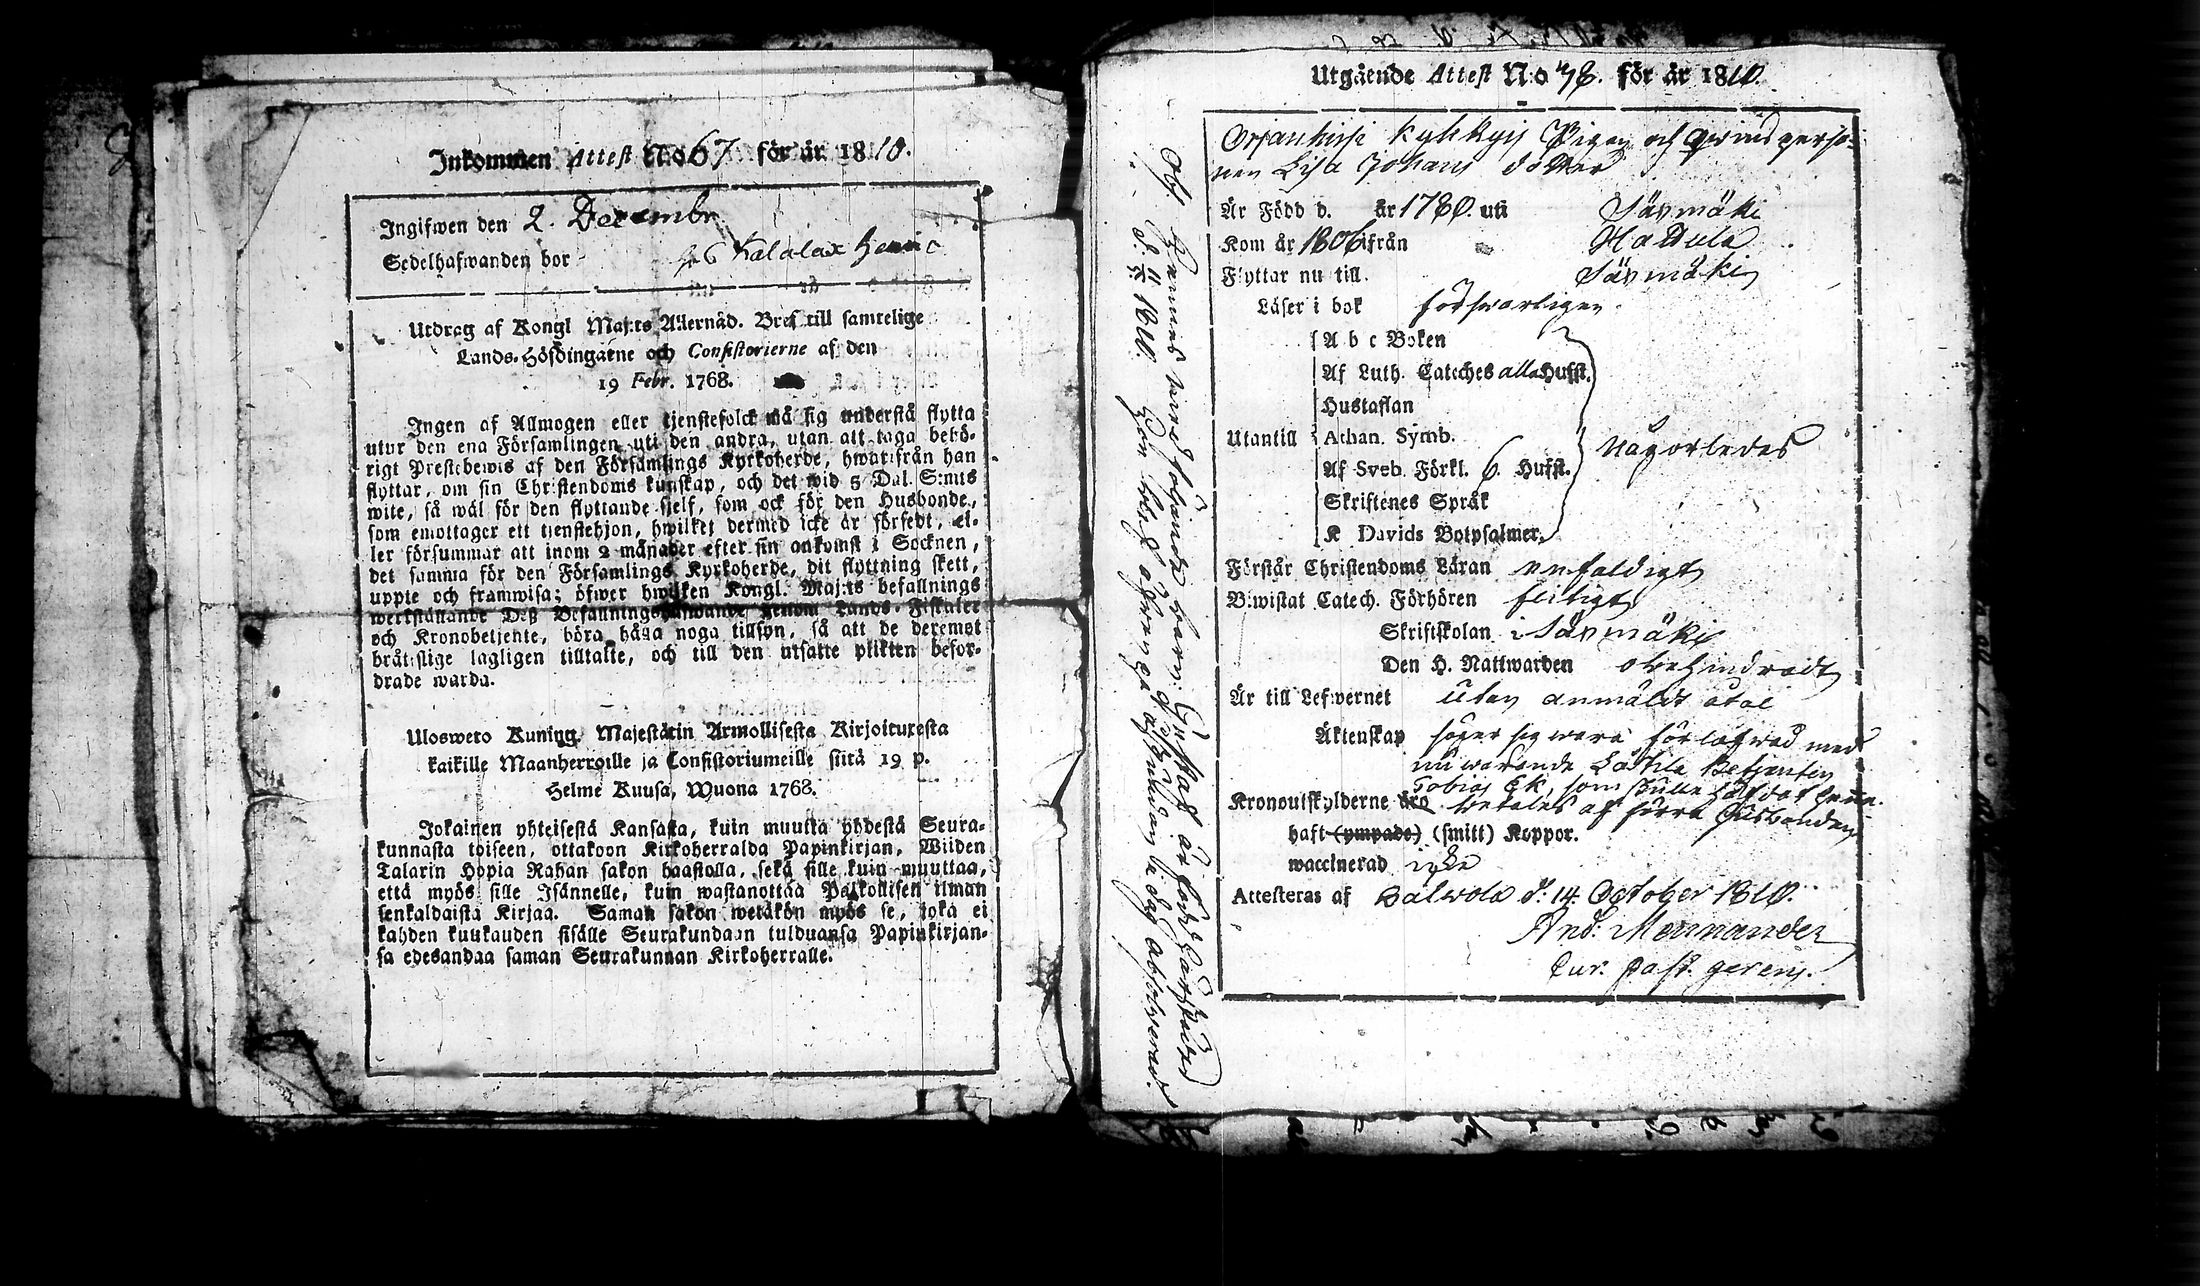 Inkommen Attest N:o 67 för år 1810.
Ingifwen den 2. Decembr
Sedelhafwanden bor hos Kalalax Henric
Utdrag af Kongl Maj:ts Allernåd. Bref till samtelige
Lands-Höfdingarne och Consistorierne af den
19 Febr. 1768.
Ingen af Allmogen eller tjenstefolck må sig understå flytta
utur den ena Församlingen uti den andra, utan att taga behö-
rigt Prestebewis af den Församlings Kyrkoherde, hwarifrån han
flyttar, om sin Christendoms kunskap, och det wid 5 Dal. S:mts
wite, så wäl för den flyttande sjelf, som ock för den Husbonde,
som emottager ett tjenstehjon, hwilket dermed icke är försedt, el-
ler försummar att inom 2 månader efter sin ankomst i Socknen,
det samma för den Församlings Kyrkoherde, dit flyttning skett,
uppte och framwisa; öfwer hwilken Kongl. Maj:ts befallnings
werkställande Deß Befallningshafwande genom Lands-Fiskaler
och Kronobetjente, böra håga noga tillsyn, så att de deremot
bråtslige lagligen tilltalte, och till den utsatte plikten befor-
drade warda.
Uloswero Kuning. Majestätin Armollisesta Kirjoituxesta
kaikille Maanherroille ja Consistoriumeille siitä 19 p.
Helme Kuusa, Wuona 1768.
Jokainen yhteisestä Kansasta, kuin muutta yhdestä Seura-
kunnasta toiseen, ottakoon Kirkoherralda Papinkirjan, Wiiden
Talarin Hopia Rahan sakon haastolla, sekä sille kuin muuttaa,
että myös sille Isännelle, kuin wastanottaa Palkollisen ilman
senkaldaista Kirjaa. Saman sakon wetäkön myös se, joka ei
kahden kuukauden sisälle Seurakundaan tulduansa Papinkirjan-
sa edesandaa saman Seurakunnan Kirkoherralle.
Utgående Attest N:o 78. för år 1810.
Orjanhirsi Kyhkyis Pigan och qwinsperso-
nen Lisa Johans dotter
Är Född d. år 1780. uti Säxmäki
Kom år 1806 ifrån Hattula
Flyttar nu till. Säxmäki
Läser i bok försvarligen.
A b c Boken
Af Luth. Cateches alla Hufst.
Hustaflan
Utantill Athan. Symb. någorledes
Af Sveb. Förkl. 6. Hufst.
Skriftenes Språk
K Davids Botpsalmer.
Förstår Christendoms Läran enfaldigt
Bewistat Catech. Förhören flitigt
Skriftskolan i Säxmäki
Den H. Nattwarden obehindradt
Är till Lefwernet utan anmäldt åtal
Äktenskap säger sig wara förlofwad med
nu warande Låstila Betjenten
Tobias Ek, som skulle
Kronoutskylderne äro betales af förra Husbonden
haft (ympade) (smitt) Koppor.
waccinerad icke
Attesteras af Salwola d. 14. October 1810.
And: Mennander
Cur. past. gerens.
Obs. Hennes medföljande barn: Gustaf är född
d. 1810. Hon blef absolverad.